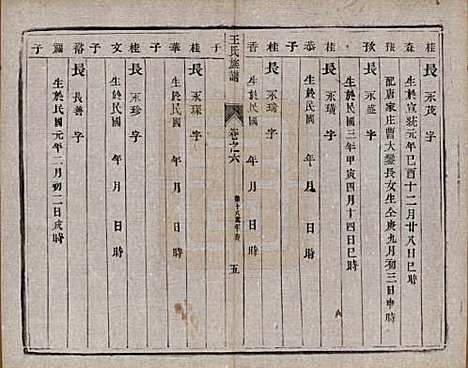 桂森子
長 永茂字
生於宣統元年己酉十二月廿八日巳時
配唐家庄曹大 長女生仝庚九月初三日申時
孜子
長 永盛字
桂恭子
長 永瑞字
生於民國三年甲寅四月十四日巳時
桂香子
長 永瑞字
生於民國 年 月 日 時
王氏族譜
卷之六
五
桂華子
長 永琛字
生於民國 年 月 日 時
桂文子
長 永珍字
生於民國 年 月 日 時
裕 子
長 長善字
生於民國元年二月初二日戌時